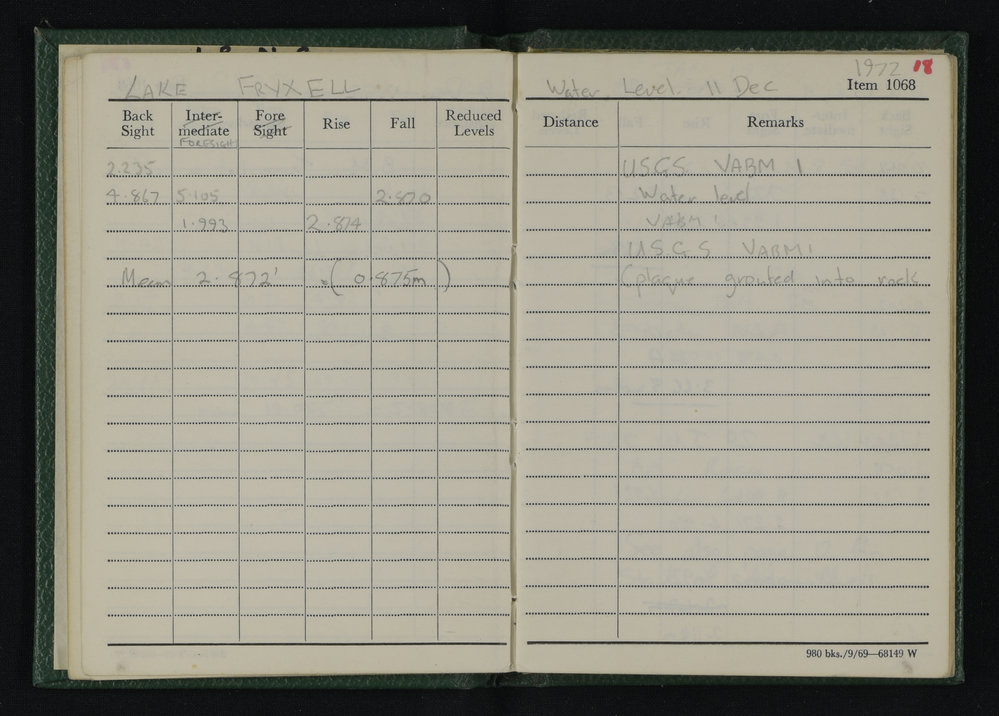 LAKE FRYXELL
Back Sight Inter-mediate Fore Sight Rise Fall Reduced Levels
FORESIGHT
2.235
4.867 5.105 2.870
1.993 2.874
Mean 2.872' (0.875m)
1972 18
Water Level 11 Dec Item 1068
Distance Remarks
USGS VABM 1
Water level
VABM 1
U.S.G.S VABM 1
(plaque grouted into rock
980 bks./9/69—68149 W